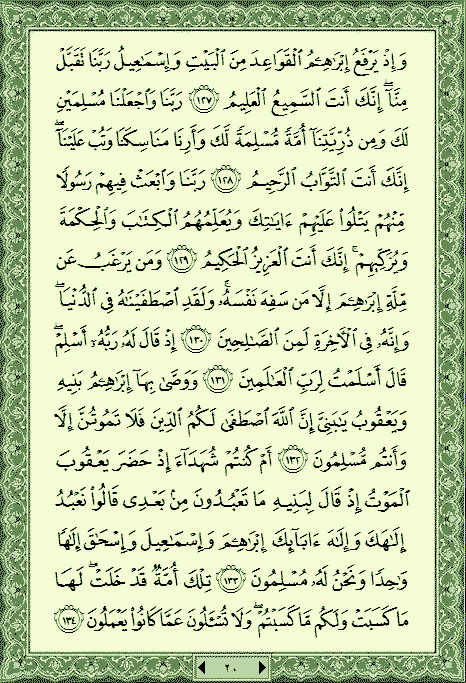 وَإِذْ يَرْفَعُ إِبْرَٰهِـۧمُ ٱلْقَوَاعِدَ مِنَ ٱلْبَيْتِ وَإِسْمَـٰعِيلُ رَبَّنَا تَقَبَّلْ
مِنَّآ ۖ إِنَّكَ أَنتَ ٱلسَّمِيعُ ٱلْعَلِيمُ ١٢٧ رَبَّنَا وَٱجْعَلْنَا مُسْلِمَيْنِ
لَكَ وَمِن ذُرِّيَّتِنَآ أُمَّةً مُّسْلِمَةً لَّكَ وَأَرِنَا مَنَاسِكَنَا وَتُبْ عَلَيْنَآ ۖ
إِنَّكَ أَنتَ ٱلتَّوَّابُ ٱلرَّحِيمُ ١٢٨ رَبَّنَا وَٱبْعَثْ فِيهِمْ رَسُولًا
مِّنْهُمْ يَتْلُوا۟ عَلَيْهِمْ ءَايَـٰتِكَ وَيُعَلِّمُهُمُ ٱلْكِتَـٰبَ وَٱلْحِكْمَةَ
وَيُزَكِّيهِمْ ۚ إِنَّكَ أَنتَ ٱلْعَزِيزُ ٱلْحَكِيمُ ١٢٩ وَمَن يَرْغَبُ عَن
مِّلَّةِ إِبْرَٰهِـۧمَ إِلَّا مَن سَفِهَ نَفْسَهُۥ ۚ وَلَقَدِ ٱصْطَفَيْنَـٰهُ فِى ٱلدُّنْيَا ۖ
وَإِنَّهُۥ فِى ٱلْـَٔاخِرَةِ لَمِنَ ٱلصَّـٰلِحِينَ ١٣٠ إِذْ قَالَ لَهُۥ رَبُّهُۥٓ أَسْلِمْ ۖ
قَالَ أَسْلَمْتُ لِرَبِّ ٱلْعَـٰلَمِينَ ١٣١ وَوَصَّىٰ بِهَآ إِبْرَٰهِـۧمُ بَنِيهِ
وَيَعْقُوبُ يَـٰبَنِىَّ إِنَّ ٱللَّهَ ٱصْطَفَىٰ لَكُمُ ٱلدِّينَ فَلَا تَمُوتُنَّ إِلَّا
وَأَنتُم مُّسْلِمُونَ ١٣٢ أَمْ كُنتُمْ شُهَدَآءَ إِذْ حَضَرَ يَعْقُوبَ
ٱلْمَوْتُ إِذْ قَالَ لِبَنِيهِ مَا تَعْبُدُونَ مِنۢ بَعْدِى قَالُوا۟ نَعْبُدُ
إِلَـٰهَكَ وَإِلَـٰهَ ءَابَآئِكَ إِبْرَٰهِـۧمَ وَإِسْمَـٰعِيلَ وَإِسْحَـٰقَ إِلَـٰهًا
وَٰحِدًا وَنَحْنُ لَهُۥ مُسْلِمُونَ ١٣٣ تِلْكَ أُمَّةٌ قَدْ خَلَتْ ۖ لَهَا
مَا كَسَبَتْ وَلَكُم مَّا كَسَبْتُمْ ۖ وَلَا تُسْـَٔلُونَ عَمَّا كَانُوا۟ يَعْمَلُونَ ١٣٤
٢٠